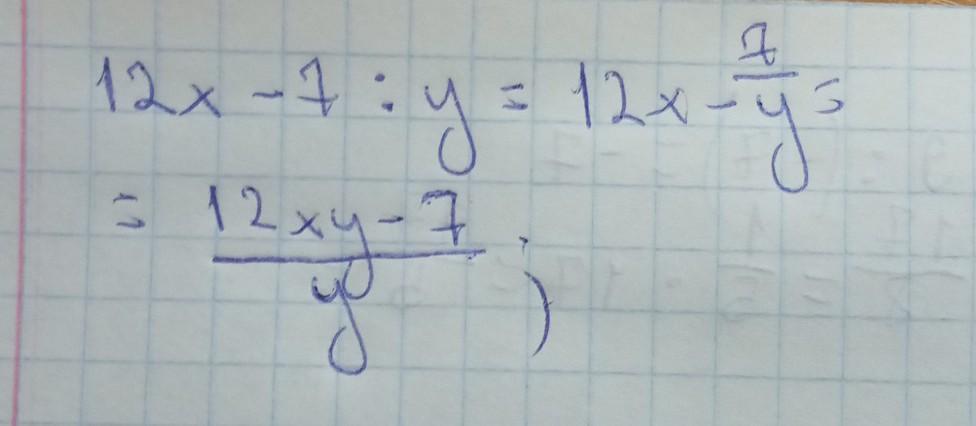 12x - 7 : y = 12x - 7/y =
= (12xy - 7)/y ;